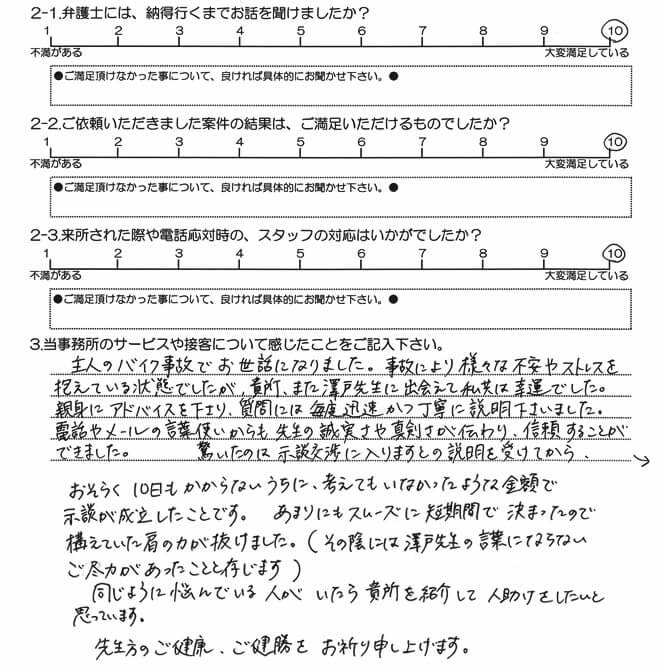 2-1.弁護士には、納得行くまでお話を聞けましたか？
1 2 3 4 5 6 7 8 9 10
不満がある 大変満足している
●ご満足頂けなかった事について、良ければ具体的にお聞かせ下さい。●
2-2.ご依頼いただきました案件の結果は、ご満足いただけるものでしたか？
1 2 3 4 5 6 7 8 9 10
不満がある 大変満足している
●ご満足頂けなかった事について、良ければ具体的にお聞かせ下さい。●
2-3.来所された際や電話応対時の、スタッフの対応はいかがでしたか？
1 2 3 4 5 6 7 8 9 10
不満がある 大変満足している
●ご満足頂けなかった事について、良ければ具体的にお聞かせ下さい。●
3.当事務所のサービスや接客について感じたことをご記入下さい。
主人のバイク事故でお世話になりました。事故により様々な不安やストレスを
抱えている状態でしたが、貴所、また澤戸先生に出会えて私共は幸運でした。
親身にアドバイスを下さり、質問には毎度迅速かつ丁寧に説明下さいました。
電話やメールの言葉使いからも先生の誠実さや真剣さが伝わり、信頼することが
できました。 驚いたのは示談交渉に入りますとの説明を受けてから、
おそらく10日もかからないうちに、考えてもいなかったような金額で
示談が成立したことです。 あまりにもスムーズに短期間で決まったので
構えていた肩の力が抜けました。(その陰には澤戸先生の言葉にならない
ご尽力があったことと存じます)
同じように悩んでいる人がいたら貴所を紹介して人助けをしたいと
思っています。
先生方のご健康、ご健勝をお祈り申し上げます。